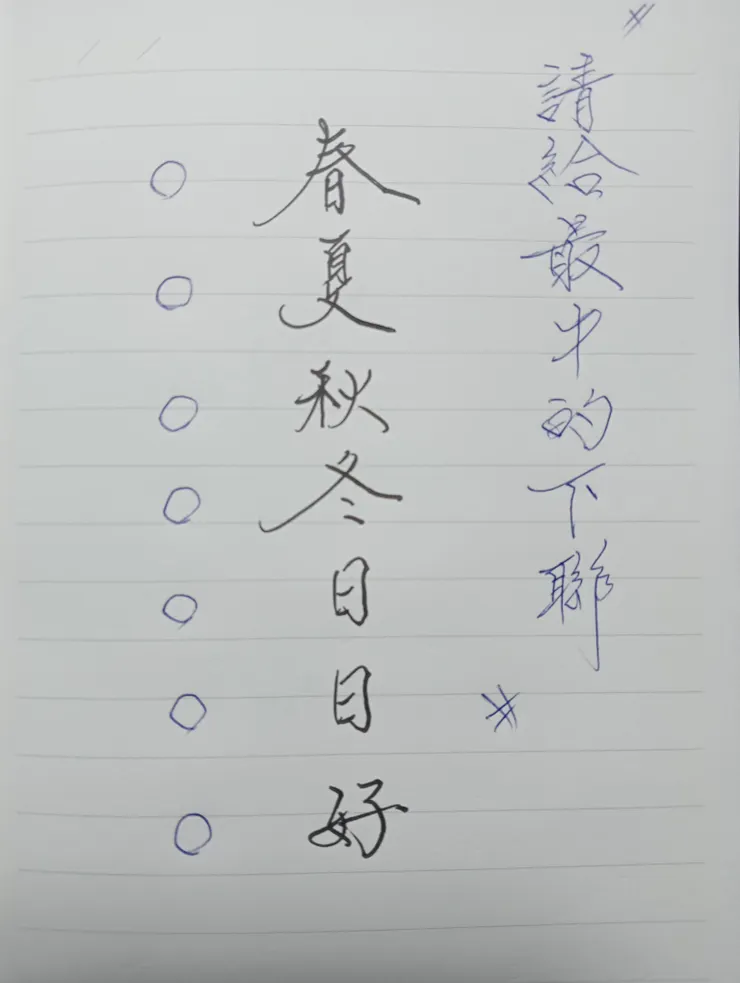 請給最中的下聯
春夏秋冬日日好
○○○○○○○